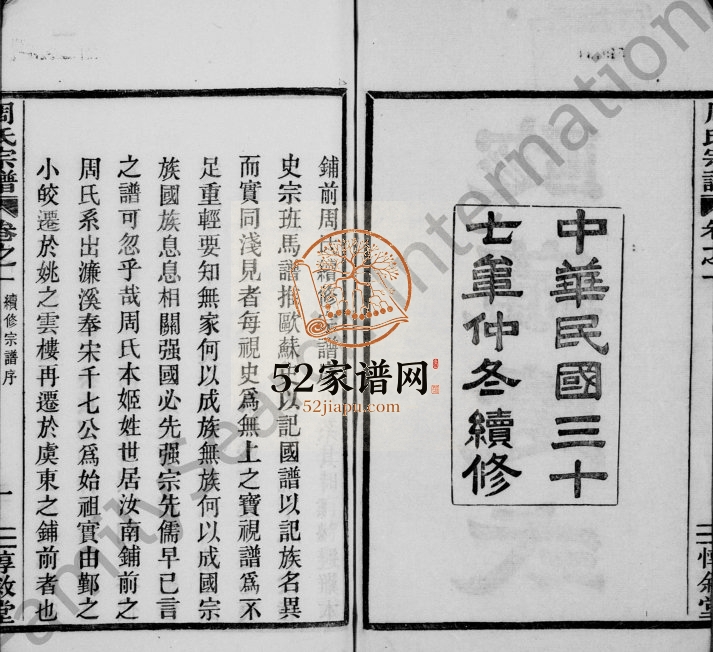 中華民國三十
七年仲冬續修
周氏宗譜 卷之一
惇敘堂
鋪前周氏續修宗譜
史宗班馬譜推歐蘇史以記國譜以記族名異
而實同淺見者每視史爲無上之寶視譜爲不
足重輕要知無家何以成族無族何以成國宗
族國族息息相關强國必先强宗先儒早已言
之譜可忽乎哉周氏本姬姓世居汝南鋪前之
周氏系出濂溪奉宋千七公爲始祖實由鄞之
小皎遷於姚之雲樓再遷於虞東之鋪前者也
周氏宗譜 卷之一 續修宗譜序 一 惇敘堂
52家谱网
52jiapu.com
Family Search International